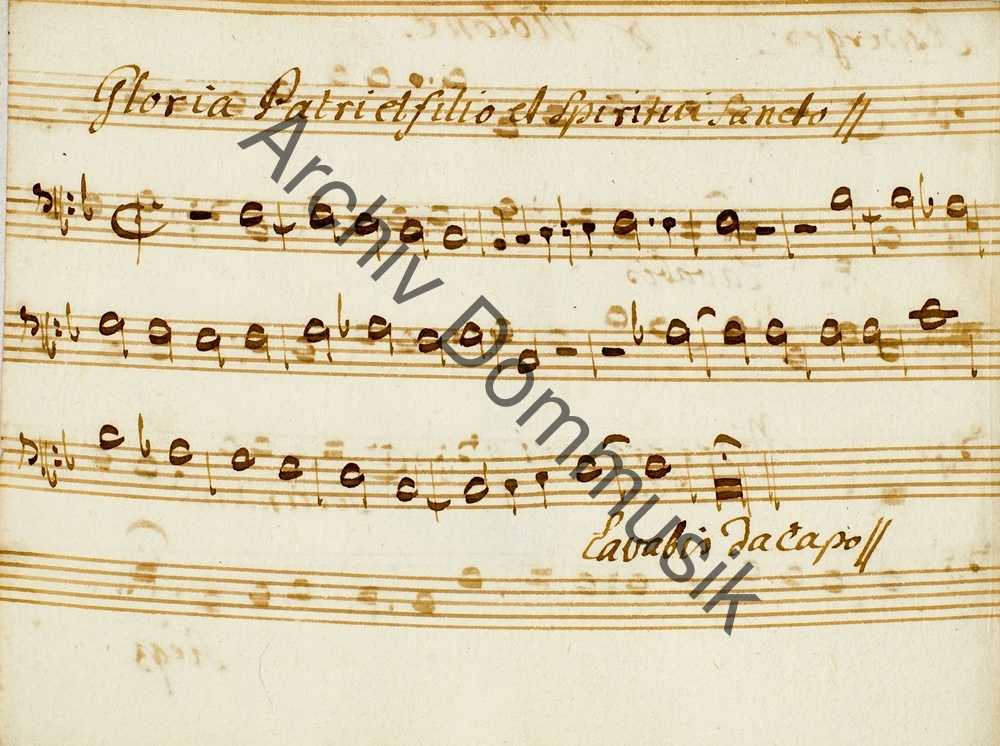 Gloria Patri et filio et Spiritui Sancto //
Archiv Dommusik
Lavabis Da Capo //